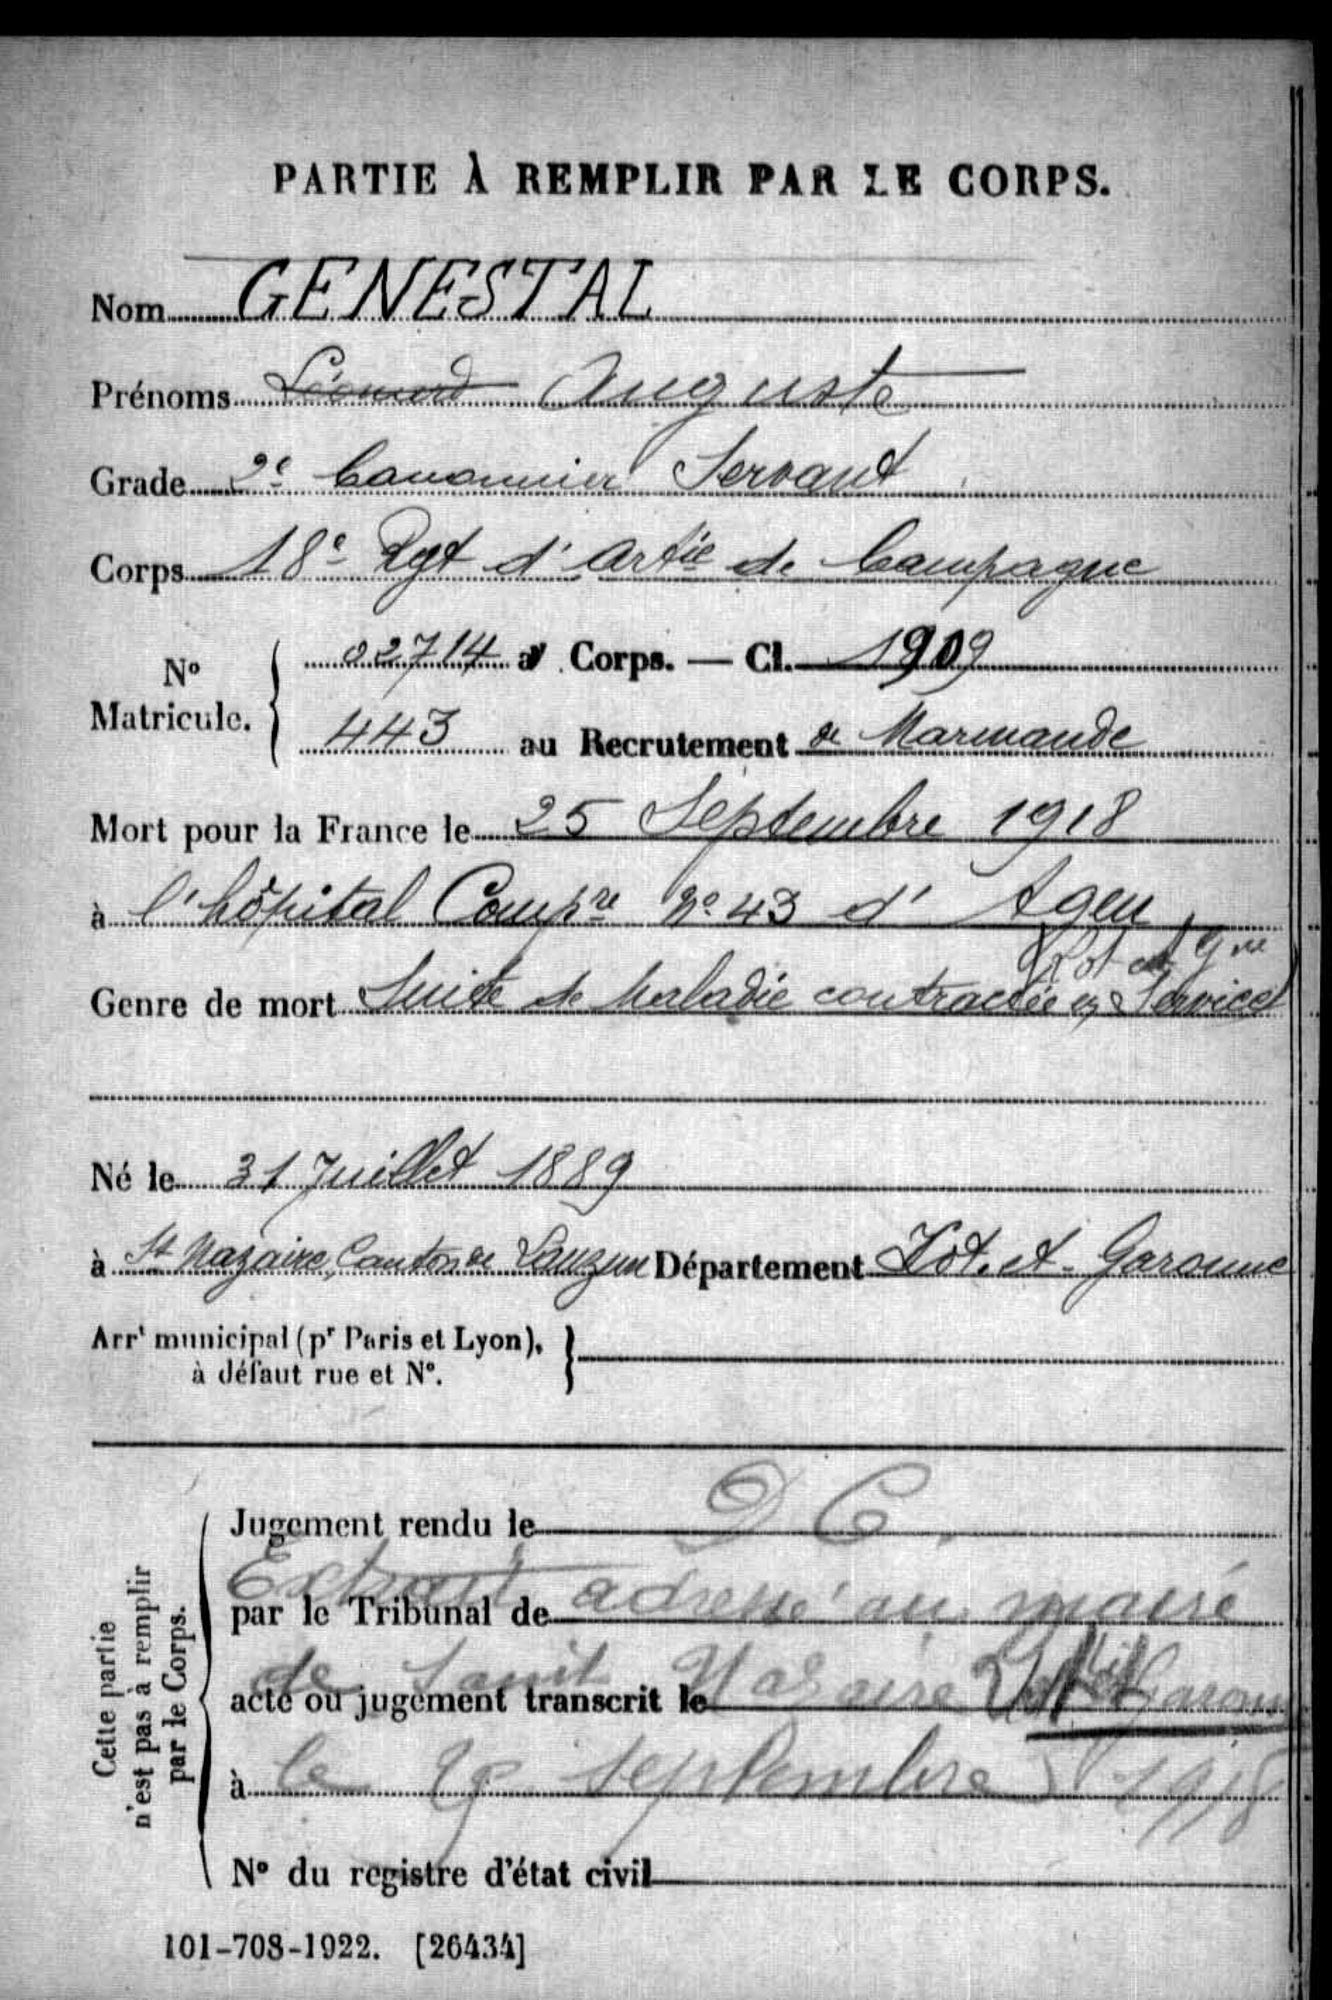 PARTIE À REMPLIR PAR LE CORPS.
Nom GENESTAL
Prénoms Léonard Auguste
Grade 2e Canonnier Servant
Corps 18e Rgt d'Artie de Campagne
No Matricule. 02714 au Corps. — Cl. 1909
443 au Recrutement de Marmande
Mort pour la France le 25 Septembre 1918
à l'hôpital Compre No 43 d'Agen
Lot et Gne
Genre de mort Suite de Maladie contractée en Service
Né le 31 Juillet 1889
à St Nazaire, Canton de Lauzun Département Lot-et-Garonne
Arrt municipal (pr Paris et Lyon),
à défaut rue et No.
Cette partie
n'est pas à remplir
par le Corps.
Jugement rendu le D C.
Extrait adressé au maire
par le Tribunal de
de Saint Nazaire Lot et Garonne
acte ou jugement transcrit le
à le septembre 1918
No du registre d'état civil
101-708-1922. [26434]